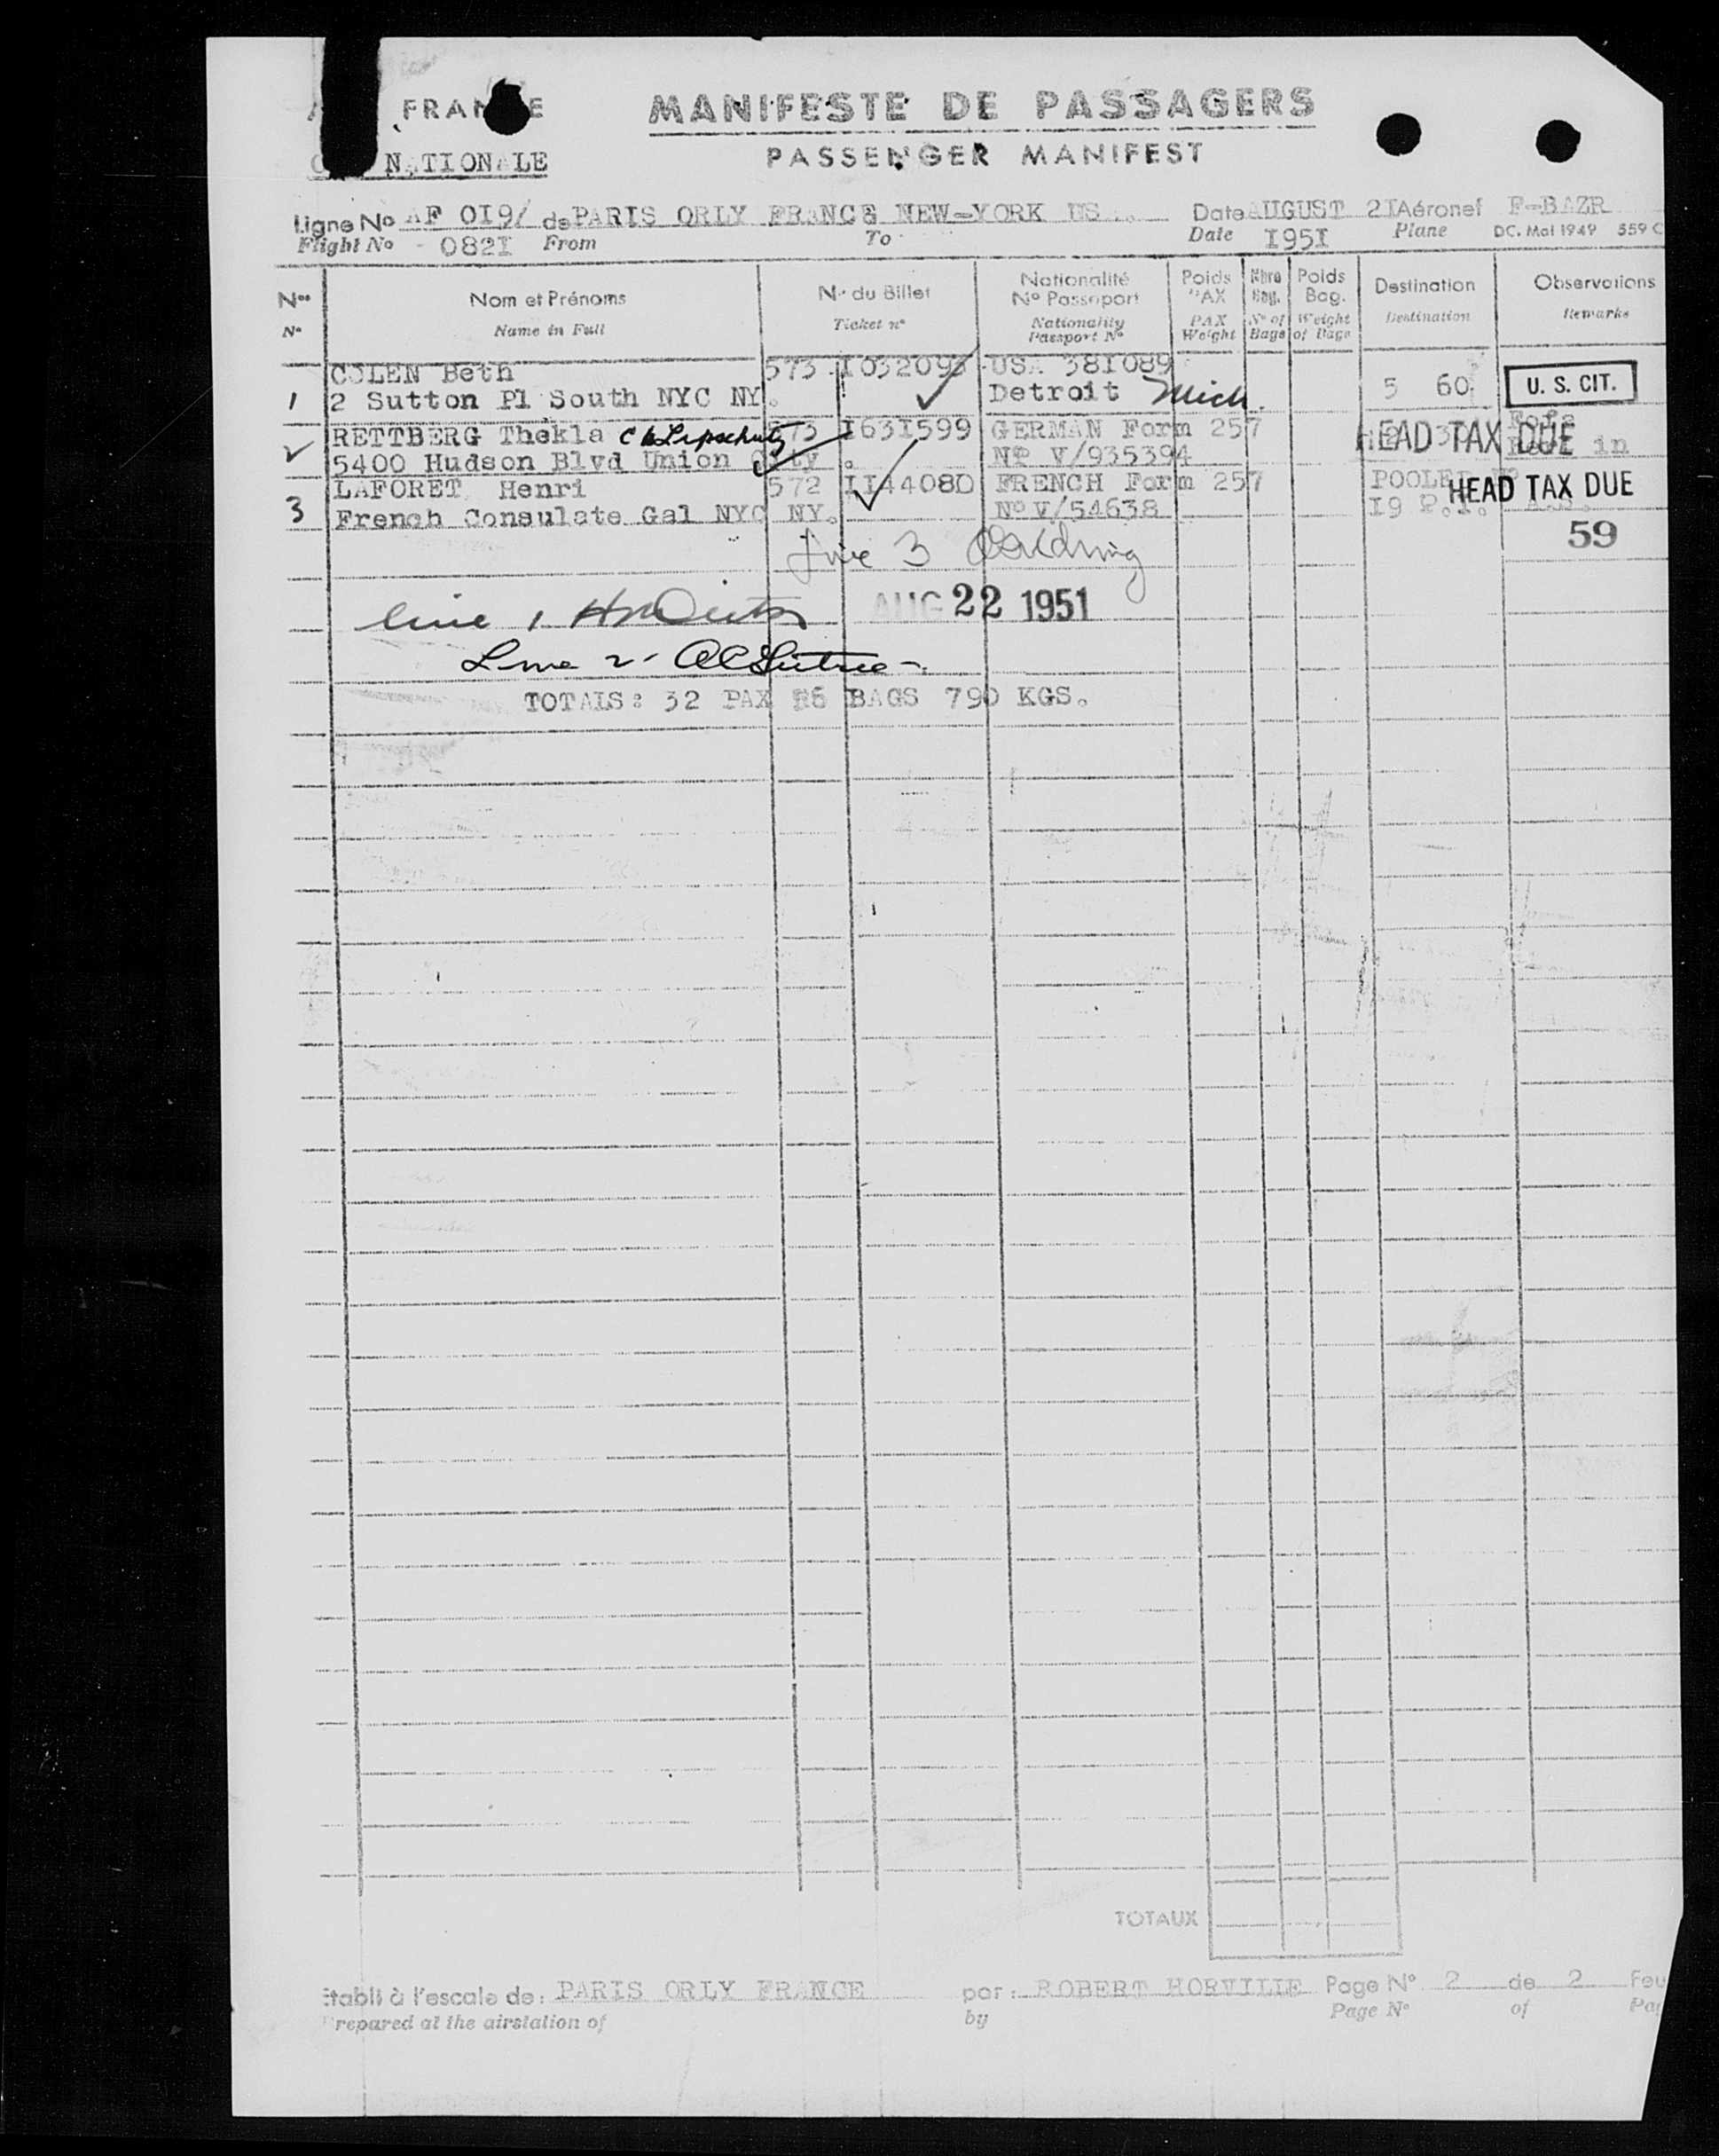 FRANCE MANIFESTE DE PASSAGERS
NATIONALE PASSENGER MANIFEST
Ligne No AF 0I9/ de PARIS ORLY FRANCE NEW-YORK US Date AUGUST 2I Aéronef F-BAZR
Flight No 082I From To Date I95I Plane DC. Mai 1949 559 C
Nos Nom et Prénoms No du Billet Nationalité No Passeport Poids PAX Nbre Bag. Poids Bag. Destination Observations
No Name in Full Ticket no Nationality Passport No PAX Weight No of Bags Weight of Bags Destination Remarks
COLEN Beth 573 I03209 USA 38I089
1 2 Sutton Pl South NYC NY. Detroit Mich. 5 60 U. S. CIT.
RETTBERG Thekla c/o Lipschutz 573 I63I599 GERMAN Form 257 HEAD TAX DUE
2 5400 Hudson Blvd Union City. No V/935394 in
LAFORET Henri 572 II4408D FRENCH Form 257 POOLED HEAD TAX DUE
3 French Consulate Gal NYC NY. No V/54638 I9 P.I.
59
Line 3
line 1 AUG 22 1951
Line 2.
TOTALS: 32 PAX BAGS 790 KGS.
TOTAUX
Etabli à l'escale de: PARIS ORLY FRANCE par: ROBERT HORVILIE Page No 2 de 2 Feu
Prepared at the airstation of by Page No of Pa